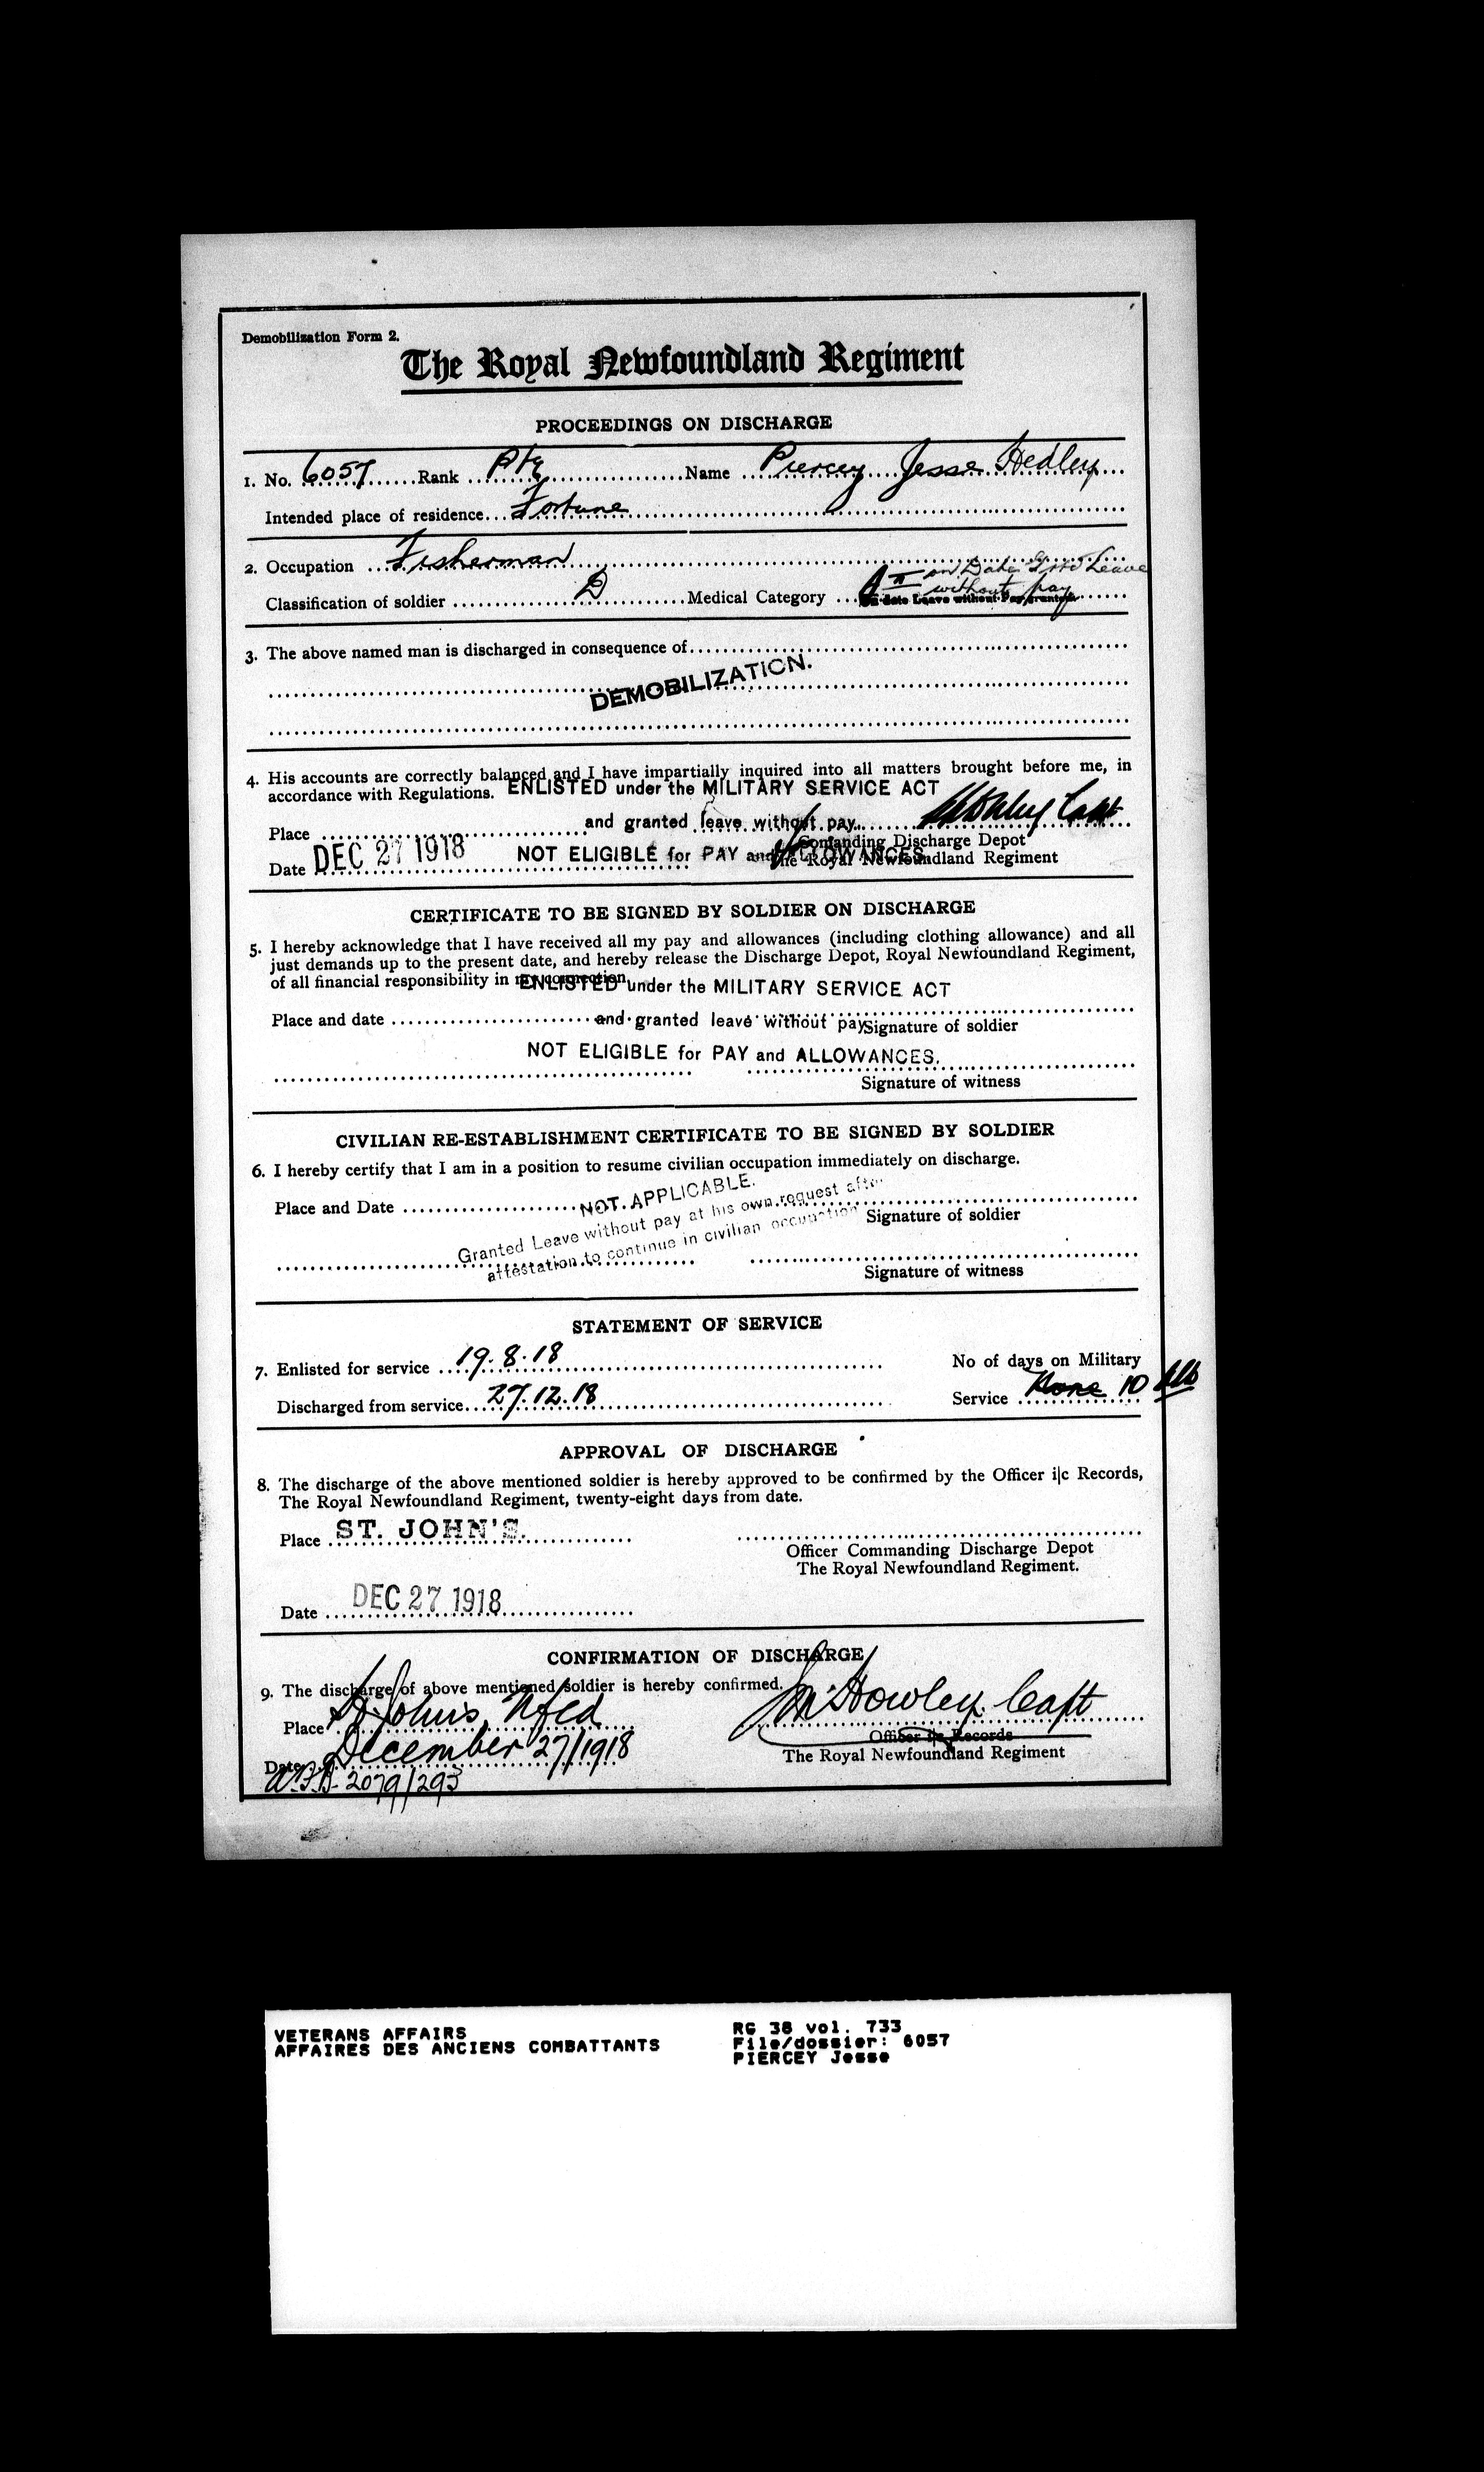 Demobilization Form 2.
The Royal Newfoundland Regiment
PROCEEDINGS ON DISCHARGE
1. No. 6057 Rank Pte Name Piercey Jesse Hedley
Intended place of residence Fortune
2. Occupation Fisherman
Classification of soldier D Medical Category A II on Date Leave without pay
on date Leave without Pay granted
3. The above named man is discharged in consequence of
DEMOBILIZATION.
4. His accounts are correctly balanced and I have impartially inquired into all matters brought before me, in
accordance with Regulations. ENLISTED under the MILITARY SERVICE ACT
Place and granted leave without pay. Capt
Commanding Discharge Depot
Date DEC 27 1918 NOT ELIGIBLE for PAY and ALLOWANCES. The Royal Newfoundland Regiment
CERTIFICATE TO BE SIGNED BY SOLDIER ON DISCHARGE
5. I hereby acknowledge that I have received all my pay and allowances (including clothing allowance) and all
just demands up to the present date, and hereby release the Discharge Depot, Royal Newfoundland Regiment,
of all financial responsibility in my connection.
ENLISTED under the MILITARY SERVICE ACT
Place and date and granted leave without pay Signature of soldier
NOT ELIGIBLE for PAY and ALLOWANCES.
Signature of witness
CIVILIAN RE-ESTABLISHMENT CERTIFICATE TO BE SIGNED BY SOLDIER
6. I hereby certify that I am in a position to resume civilian occupation immediately on discharge.
Place and Date NOT APPLICABLE. Signature of soldier
Granted Leave without pay at his own request after
attestation to continue in civilian occupation
Signature of witness
STATEMENT OF SERVICE
7. Enlisted for service 19.8.18 No of days on Military
Discharged from service 27.12.18 Service None 10
APPROVAL OF DISCHARGE
8. The discharge of the above mentioned soldier is hereby approved to be confirmed by the Officer i|c Records,
The Royal Newfoundland Regiment, twenty-eight days from date.
Place ST. JOHN'S.
Officer Commanding Discharge Depot
The Royal Newfoundland Regiment.
Date DEC 27 1918
CONFIRMATION OF DISCHARGE
9. The discharge of above mentioned soldier is hereby confirmed.
Place St John's, Nfld Howley Capt
Officer i|c Records
Date December 27/1918 The Royal Newfoundland Regiment
2079/293
VETERANS AFFAIRS
AFFAIRES DES ANCIENS COMBATTANTS
RG 38 vol. 733
File/dossier: 6057
PIERCEY Jesse